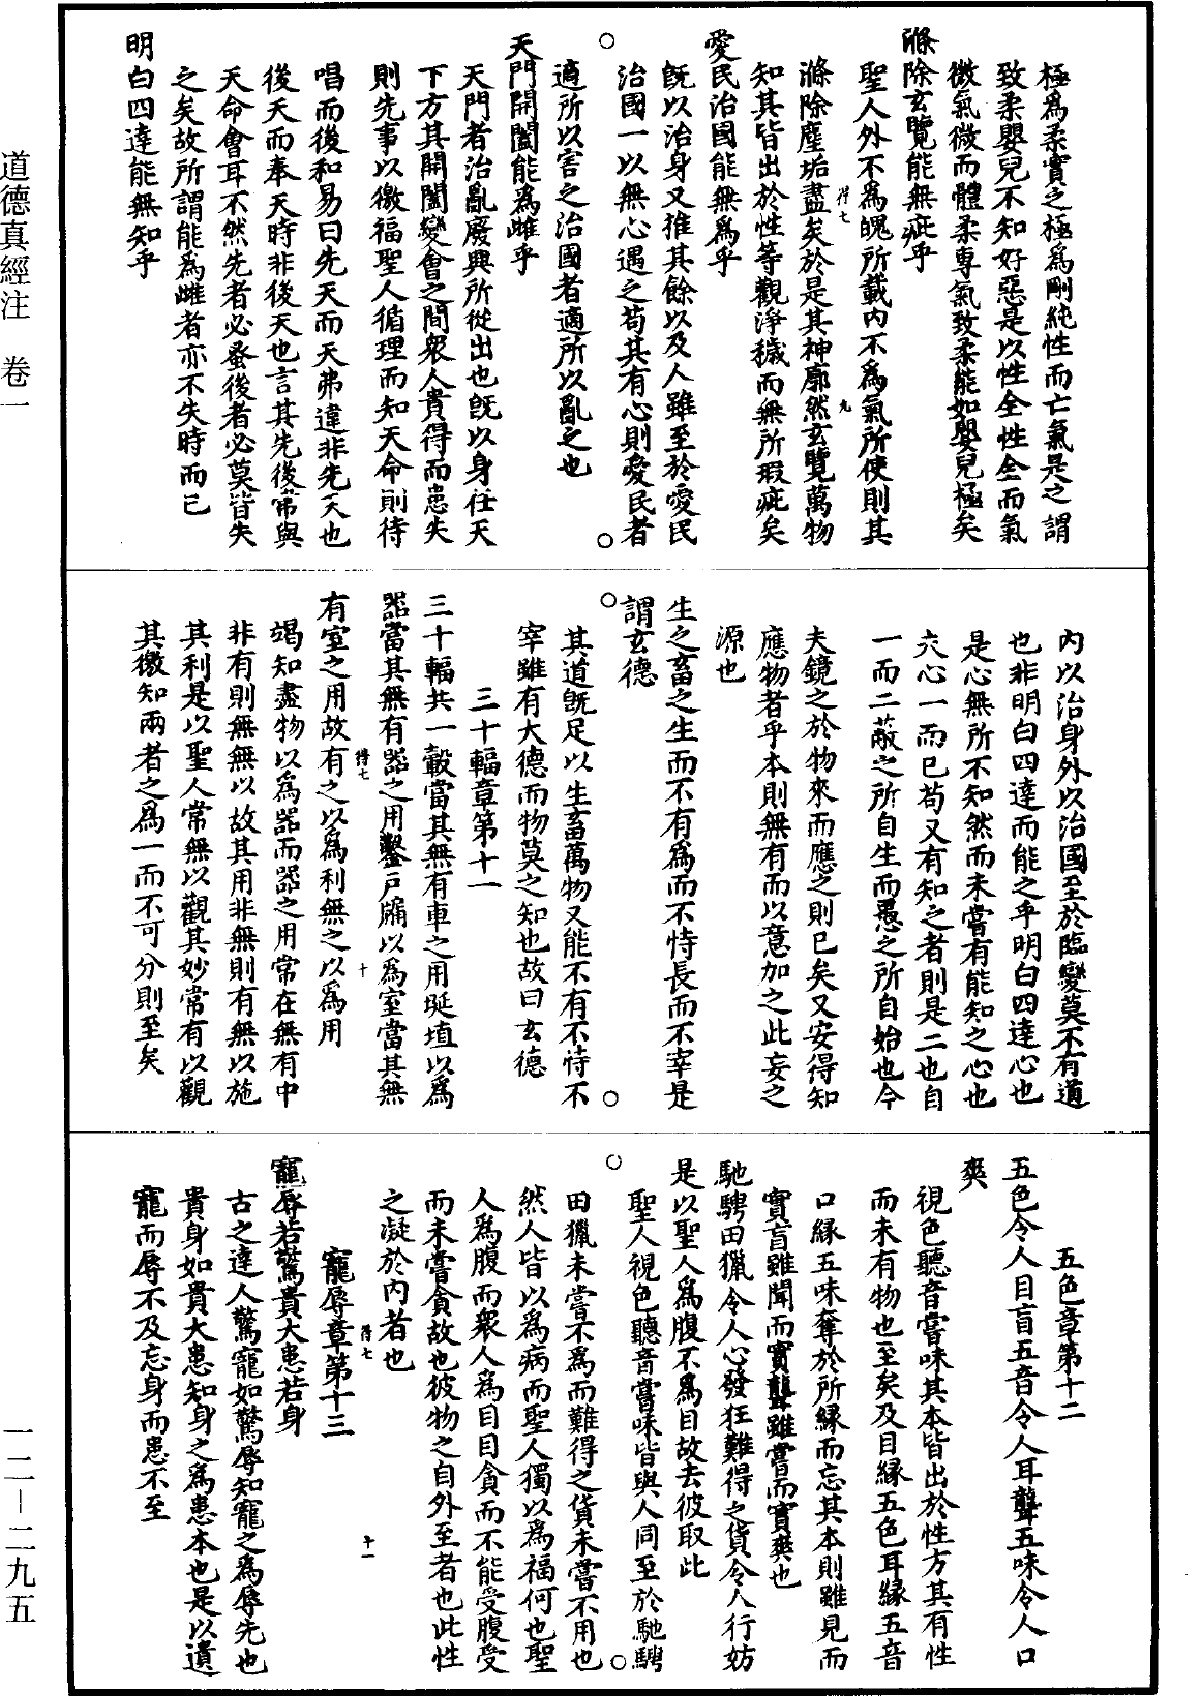 極爲柔實之極爲剛純性而亡氣是之謂
致柔嬰兒不知好惡是以性全性全而氣
微氣微而體柔専氣致柔能如嬰兒極矣
滌除玄覽能無疵乎
聖人外不爲魄所載内不爲氣所使則其
滌除塵垢盡矣於是其神廓然玄覽萬物
知其皆出於性等觀淨穢而無所瑕疵矣
愛民治國能無爲乎
旣以治身又推其餘以及人雖至於愛民
治國一以無心遇之苟其有心則愛民者
適所以害之治國者適所以亂之也
天門開闔能爲雌乎
天門者治亂廢興所從出也旣以身任天
下方其開闔變會之間衆人貴得而患失
則先事以徼福聖人循理而知天命則待
唱而後和易曰先天而天弗違非先天也
後天而奉天時非後天也言其先後常與
天命會耳不然先者必蚤後者必莫皆失
之矣故所謂能爲雌者亦不失時而已
明白四達能無知乎
得七
九
内以治身外以治國至於臨變莫不有道
也非明白四達而能之乎明白四達心也
是心無所不知然而未嘗有能知之心也
夫心一而已苟又有知之者則是二也自
一而二蔽之所自生而愚之所自始也今
夫鏡之於物來而應之則已矣又安得知
應物者乎本則無有而以意加之此妄之
源也
生之畜之生而不有爲而不恃長而不宰是
謂玄德
其道旣足以生畜萬物又能不有不恃不
宰雖有大德而物莫之知也故曰玄德
三十輻章第十一
三十輻共一轂當其無有車之用埏埴以爲
器當其無有器之用鑿戸牖以爲室當其無
有室之用故有之以爲利無之以爲用
得七
十
竭知盡物以爲器而器之用常在無有中
非有則無無以故其用非無則有無以施
其利是以聖人常無以觀其妙常有以觀
其徼知兩者之爲一而不可分則至矣
五色章第十二
五色令人目盲五音令人耳聾五味令人口
爽
視色聽音嘗味其本皆出於性方其有性
而未有物也至矣及目緣五色耳緣五音
口緣五味奪於所緣而忘其本則雖見而
實盲雖聞而實聾雖嘗而實爽也
馳騁田獵令人心發狂難得之貨令人行妨
是以聖人爲腹不爲目故去彼取此
聖人視色聽音嘗味皆與人同至於馳騁
田獵未嘗不爲而難得之貨未嘗不用也
然人皆以爲病而聖人獨以爲福何也聖
人爲腹而衆人爲目目貪而不能受腹受
而未嘗貪故也彼物之自外至者也此性
之凝於内者也
寵辱章第十三
得七
十一
寵辱若驚貴大患若身
古之達人驚寵如驚辱知寵之爲辱先也
貴身如貴大患知身之爲患本也是以遺
寵而辱不及忘身而患不至
道德真經注　卷一
一二—二九五